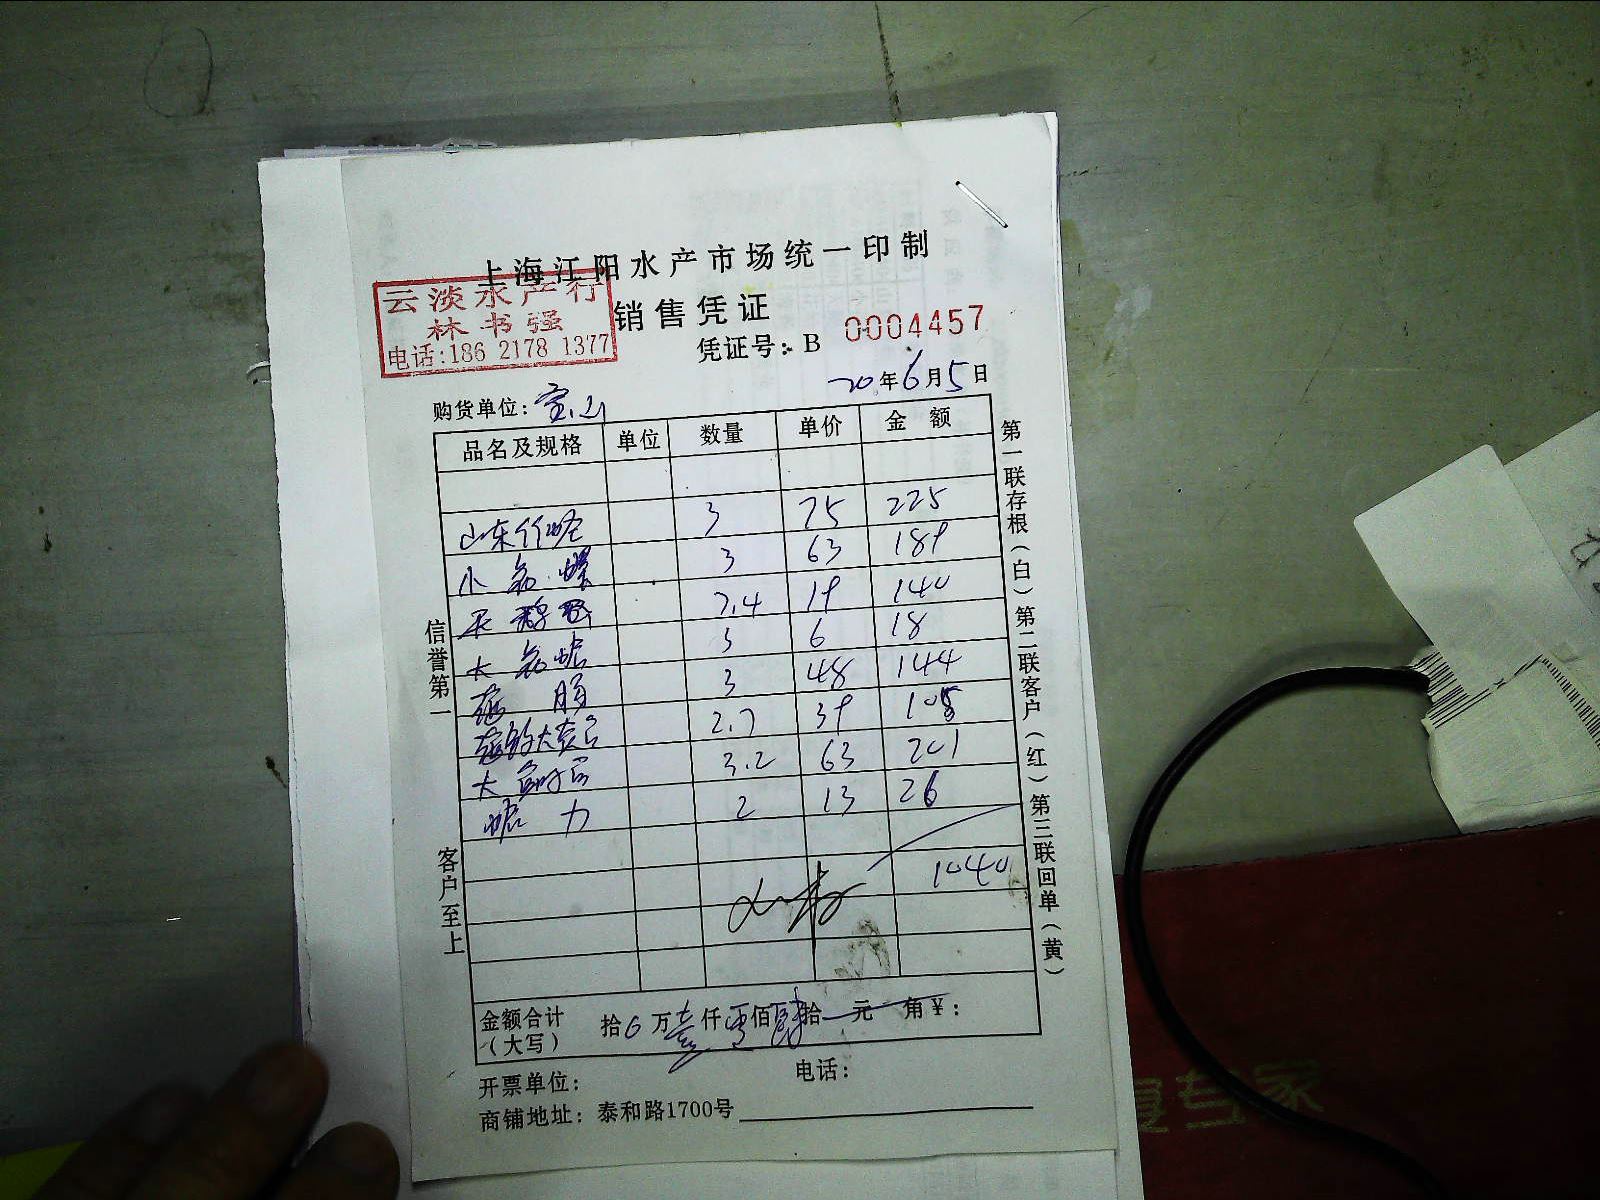 上海江阳水产市场统一印制
云淡水产行
林书强
电话:186 2178 1377
销售凭证
凭证号: B 0004457
20年6月5日
购货单位: 宝山
品名及规格 单位 数量 单价 金额
山东竹蛏 3 75 225
小 螺 3 63 189
7.4 19 140
大 3 6 18
3 48 144
2.7 39 105
大 3.2 63 201
2 13 26
1040
金额合计
(大写)
拾 万壹仟零佰肆拾 元 角¥:
开票单位: 电话:
商铺地址: 泰和路1700号
信誉第一
客户至上
第一联存根(白)第二联客户(红)第三联回单(黄)
食专家